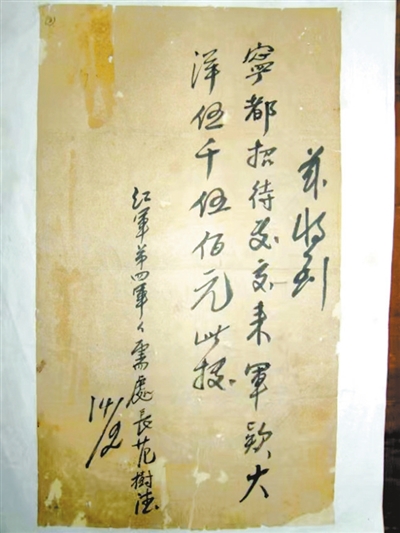 兹收到
寧都招待处交来軍欵大
洋伍千伍佰元此據
红軍第四軍々需處長范樹德
14/2